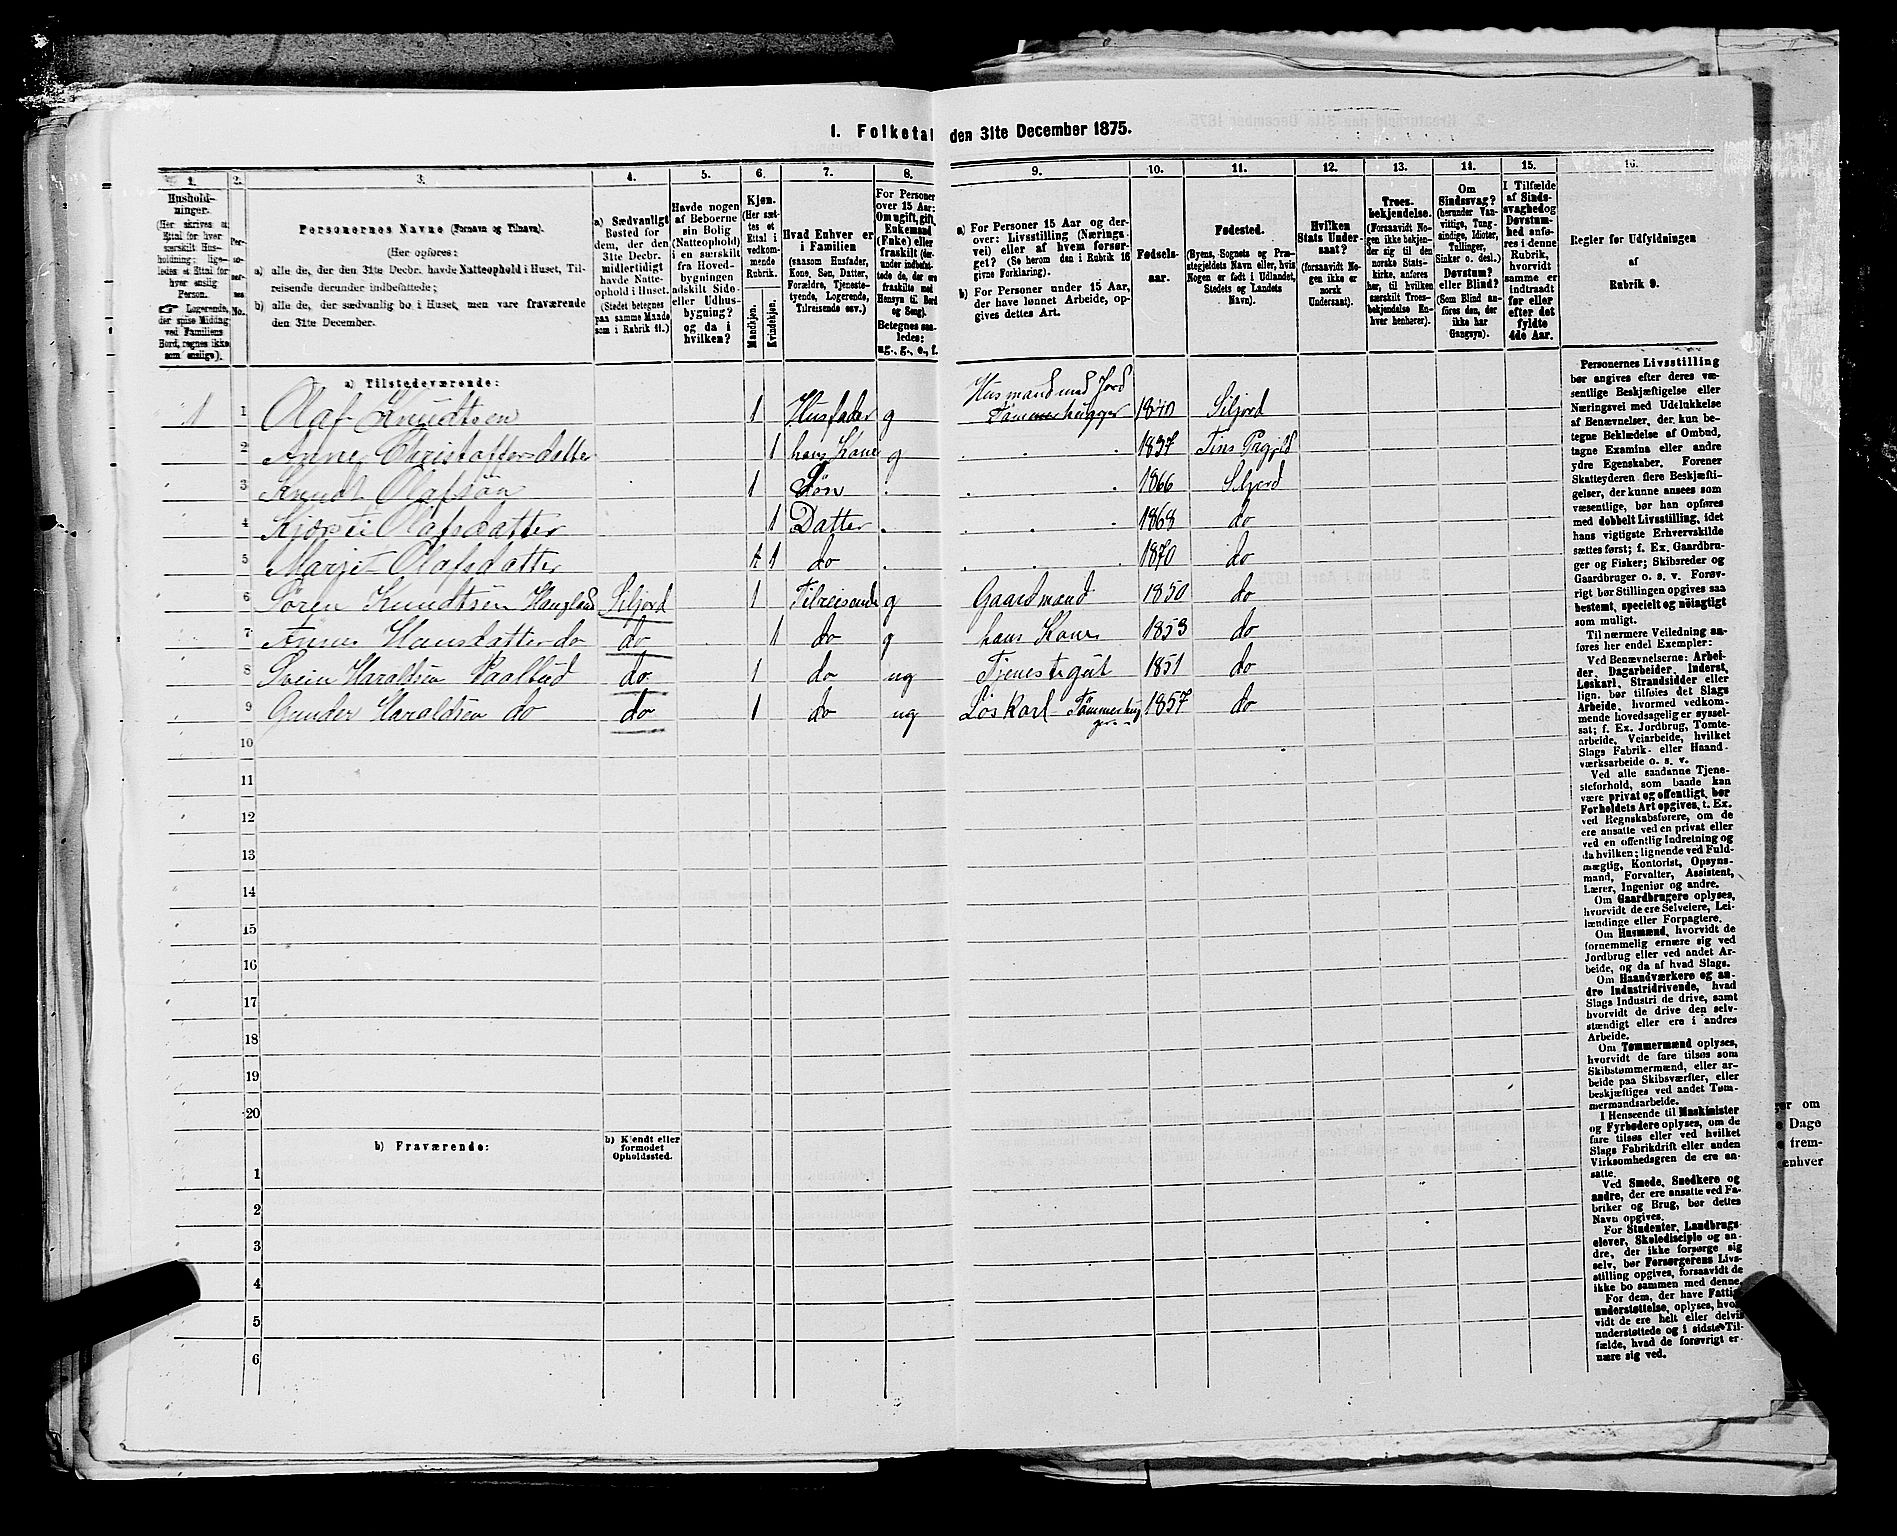 I. Folketal den 31te December 1875.
1. 2. 3. 4. 5. 6. 7. 8. 9. 10. 11. 12. 13. 14. 15. 16.
Husholdninger.
(Her skrives et
Ettal for hver
særskilt Husholdning;
ligeledes et Ettal for
hver enslig
Person.
☞ Logerende,
der spise Middag
ved Familiens
Bord, regnes ikke
som enslige).
Personernes No.
Personernes Navne (Fornavn og Tilnavn).
(Her opføres:
a) alle de, der den 31te Decbr. havde Natteophold i Huset, Tilreisende derunder indbefattede;
b) alle de, der sædvanlig bo i Huset, men vare fraværende
den 31te December.
a) Sædvanligt
Bosted for
dem, der den
31te Decbr.
midlertidigt
havde Natteophold i Huset.
(Stedet betegnes
paa samme Maade
som i Rubrik 11.)
Havde nogen
af Beboerne
sin Bolig
(Natteophold) i
en særskilt
fra Hovedbygningen
adskilt Side- eller Udhusbygning?
og da i
hvilken?
Kjøn.
(Her sættes et
Ettal i
vedkommende
Rubrik.
Mandkjøn.
Kvindekjøn.
Hvad Enhver er
i Familien
(saasom Husfader,
Kone, Søn, Datter,
Forældre, Tjenestetyende, Logerende,
Tilreisende osv.)
For Personer
over 15 Aar:
Om ugift, gift,
Enkemand
(Enke) eller
fraskilt (derunder indbefattede de, der ere
fraskilte med
Hensyn til Bord
og Seng).
Betegnes saaledes:
ug., g., e., f.
a) For Personer 15 Aar og derover: Livsstilling (Næringsvei) eller af hvem forsørget? (Se herom den i Rubrik 16
givne Forklaring).
b) For Personer under 15 Aar,
der have lønnet Arbeide, opgives dettes Art.
Fødselsaar.
Fødested.
(Byens, Sognets og Præstegjeldets Navn eller, hvis
Nogen er født i Udlandet,
Stedets og Landets
Navn).
Hvilken
Stats Undersaat?
(forsaavidt Nogen ikke er
norsk
Undersaat).
Troesbekjendelse.
(Forsaavidt Nogen ikke bekjender sig til den
norske Statskirke, anføres
her, til hvilken
særskilt Troesbekjendelse Enhver henhører).
Om
Sindssvag?
(herunder Vanvittige, Tungsindige, Idioter,
Tullinger,
Sinker o. desl.)
Døvstum?
eller Blind?
(Som Blind anføres den, der
ikke har
Gangsyn).
I Tilfælde
af Sindssvaghed og
Døvstumhed anføres i denne
Rubrik,
hvorvidt
samme er
indtraadt
før eller
efter det
fyldte
4de Aar.
Regler for Udfyldningen
af
Rubrik 9.
a) Tilstedeværende:
Husmand med Jord
1 1 Olaf Knudtsen 1 Husfader g Tømmerhugger 1840 Siljord
2 Anne Christoffersdatter 1 hans Kone g 1837 Tins Prgjeld
3 Knudt Olafsøn 1 Søn 1866 Siljord
4 Kjersti Olafsdatter 1 Datter 1868 do
5 Margit Olafsdatter 1 do 1870 do
6 Søren Knudtsen Haugland Siljord 1 Tilreisende g Gaardmand 1850 do
7 Anne Hansdatter do do 1 do g hans Kone 1853 do
8 Svein Haraldsen do 1 do ug Tjenestegut 1851 do
9 Gunder Haraldsen do do 1 do ug Løskarl Tømmerhugger 1857 do
10
11
12
13
14
15
16
17
18
19
20
b) Fraværende:
b) Kjendt eller
formodet
Opholdssted.
1
2
3
4
5
6
Personernes Livsstilling
bør angives efter deres væsentlige Beskjæftigelse eller
Næringsvei med Udelukkelse
af Benævnelser, der kun betegne Beklædelse af Ombud,
tagne Examina eller andre
ydre Egenskaber. Forener
Skatteyderen flere Beskjæftigelser, der kunne ansees som
væsentlige, bør han opføres
med dobbelt Livsstilling, idet
hans vigtigste Erhvervskilde
sættes først; f. Ex. Gaardbruger og Fisker; Skibsreder og
Gaardbruger o. s. v. Forøvrigt bør Stillingen opgives saa
bestemt, specielt og nøiagtigt
som muligt.
Til nærmere Veiledning anføres her endel Exempler:
Ved Benævnelserne: Arbeider, Dagarbeider, Inderst,
Løskarl, Strandsidder eller
lign. bør tilføies det Slags
Arbeide, hvormed vedkommende hovedsagelig er sysselsat; f. Ex. Jordbrug, Tomtearbeide, Veiarbeide, hvilket
Slags Fabrik- eller Haandværksarbeide o. s. v.
Ved alle saadanne Tjenesteforhold, som baade kan
være privat og offentligt, bør
Forholdets Art opgives, t. Ex.
ved Regnskabsførere, om de
ere ansatte ved en privat eller
ved en offentlig Indretning og
da hvilken; lignende ved Fuldmægtig, Kontorist, Opsynsmand, Forvalter, Assistent,
Lærer, Ingeniør og andre.
Om Gaardbrugere oplyses,
hvorvidt de ere Selveiere, Leilændinge eller Forpagtere.
Om Husmænd, hvorvidt de
fornemmelig ernære sig ved
Jordbrug eller ved andet Arbeide, og da af hvad Slags.
Om Haandværkere og andre Industridrivende, hvad
Slags Industri de drive, samt
hvorvidt de drive den selvstændigt eller ere i andres
Arbeide.
Om Tømmermænd oplyses,
hvorvidt de fare tilsøs som
Skibstømmermænd, eller arbeide paa Skibsværfter, eller
beskjæftiges ved andet Tømmermandsarbeide.
I Henseende til Maskinister
og Fyrbødere oplyses, om de
fare tilsøs eller ved hvilket
Slags Fabrikdrift eller anden
Virksomhedsgren de ere ansatte.
Ved Smede, Snedkere og
andre, der ere ansatte ved Fabriker og Brug, bør dettes
Navn opgives.
For Studenter, Landbrugselever, Skoledisciple og andre, der ikke forsørge sig
selv, bør Forsørgerens Livsstilling opgives, forsaavidt de
ikke bo sammen med denne.
For dem, der have Fattigunderstøttelse, oplyses, hvorvidt de ere helt eller delvis
understøttede og i sidste Tilfælde, hvad de forøvrigt ernære sig ved.